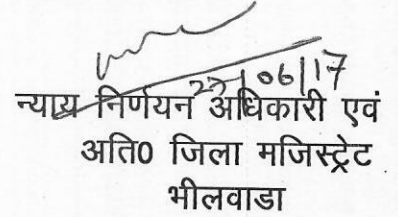 27/06/17
न्याय निर्णयन अधिकारी एवं
अति0 जिला मजिस्ट्रेट
भीलवाडा